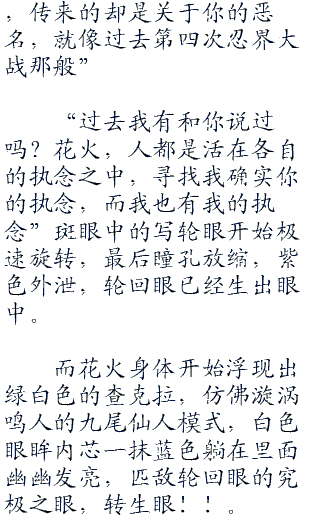 ，传来的却是关于你的恶
名，就像过去第四次忍界大
战那般”
“过去我有和你说过
吗？花火，人都是活在各自
的执念之中，寻找我确实你
的执念，而我也有我的执
念”斑眼中的写轮眼开始极
速旋转，最后瞳孔放缩，紫
色外泄，轮回眼已经生出眼
中。
而花火身体开始浮现出
绿白色的查克拉，仿佛漩涡
鸣人的九尾仙人模式，白色
眼眸内芯一抹蓝色躺在里面
幽幽发亮，匹敌轮回眼的究
极之眼，转生眼！！。